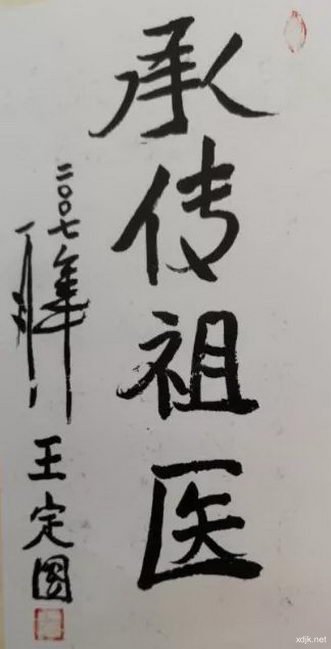 承传祖医
二〇〇七年
王定圆
xdjk.net